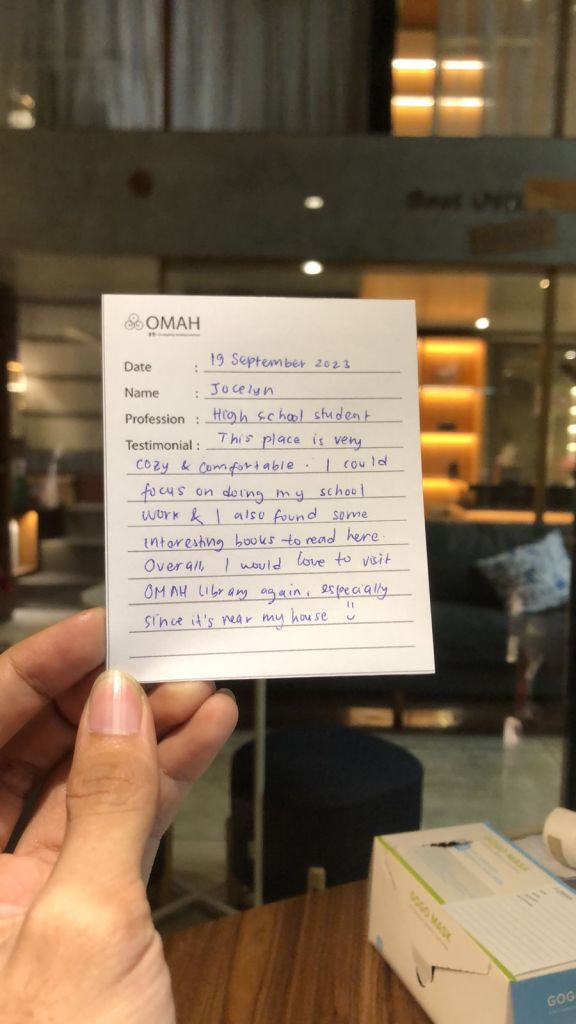 OMAH
Date : 19 September 2023
Name : Jocelyn
Profession : High school student
Testimonial : This place is very
cozy & comfortable. I could
focus on doing my school
work & I also found some
interesting books to read here.
Overall, I would love to visit
OMAH Library again, especially
since it's near my house ü
GOGO MASK
GOGO MASK
GOGO